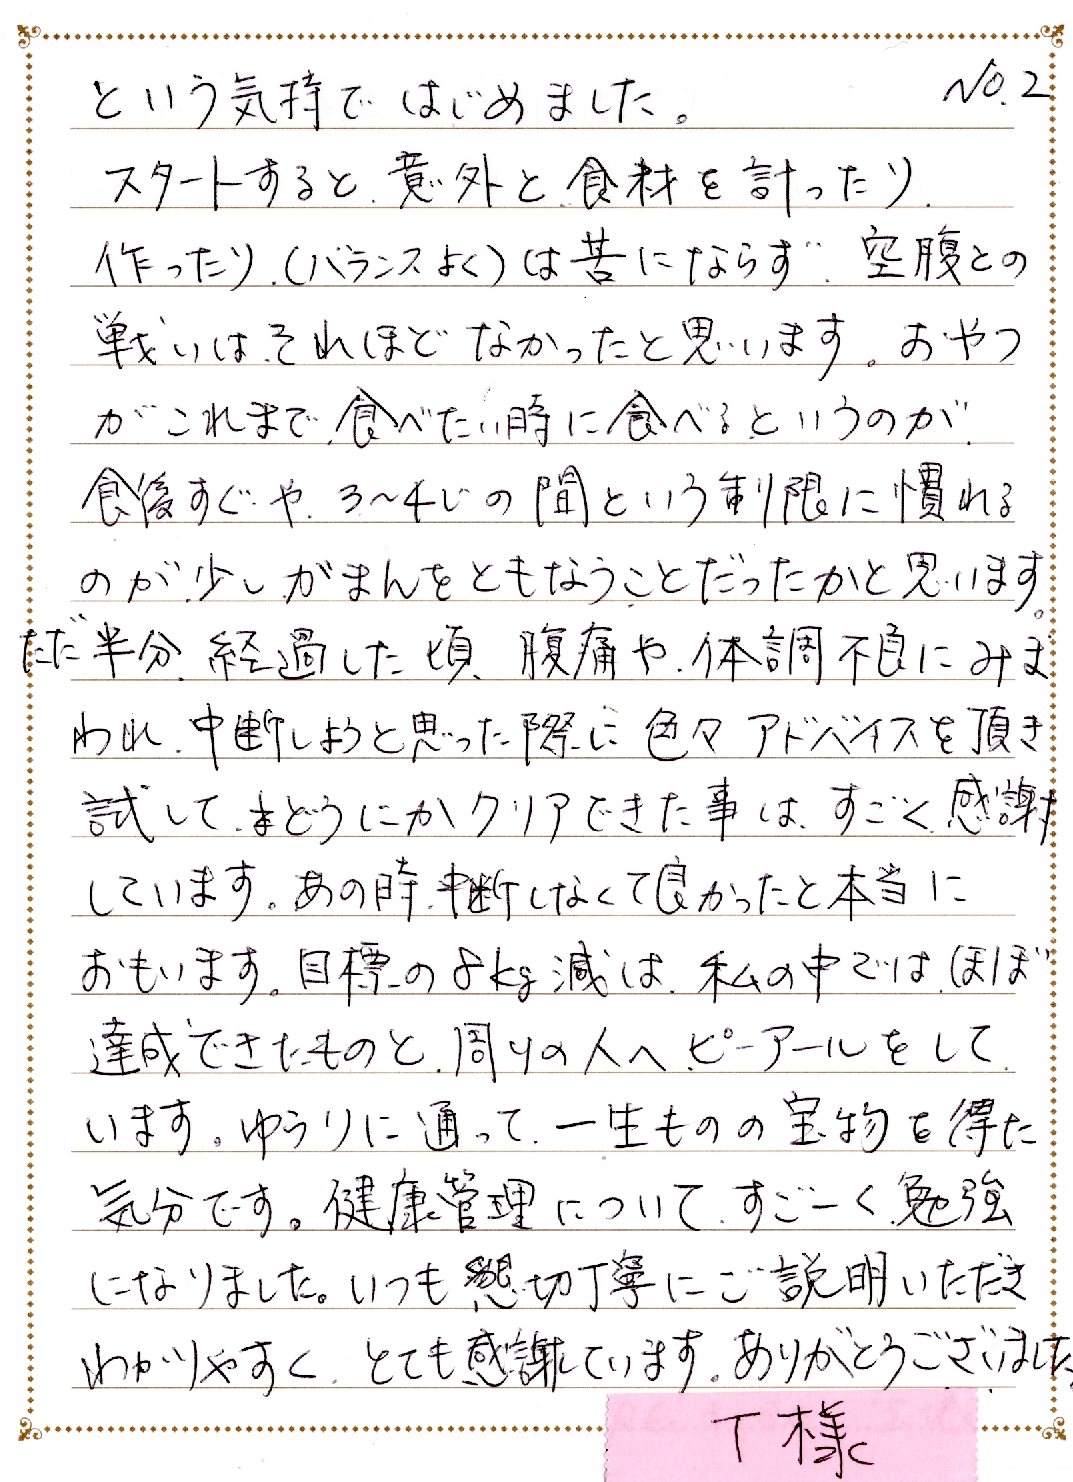 No.2
という気持ではじめました。
スタートすると、意外と、食材を計ったり、
作ったり、(バランスよく)は苦にならず、空腹との
戦いは、それほどなかったと思います。おやつ
がこれまで、食べたい時に食べるというのが、
食後すぐや、3〜4じの間という制限に慣れる
のが、少しがまんをともなうことだったかと思います。
ただ半分、経過した頃、腹痛や、体調不良にみま
われ、中断しようと思った際に、色々アドバイスを頂き
試して、まどうにかクリアできた事は、すごく、感謝
しています。あの時、中断しなくて良かったと本当に
おもいます。目標の8kg減は、私の中では、ほぼ
達成できたものと、周りの人へ、ピーアールをして
います。ゆうりに通って、一生ものの宝物を得た
気分です。健康管理について、すごーく勉強
になりました。いつも懇切丁寧にご説明いただき
わかりやすく、とても感謝しています。ありがとうございました。
T様